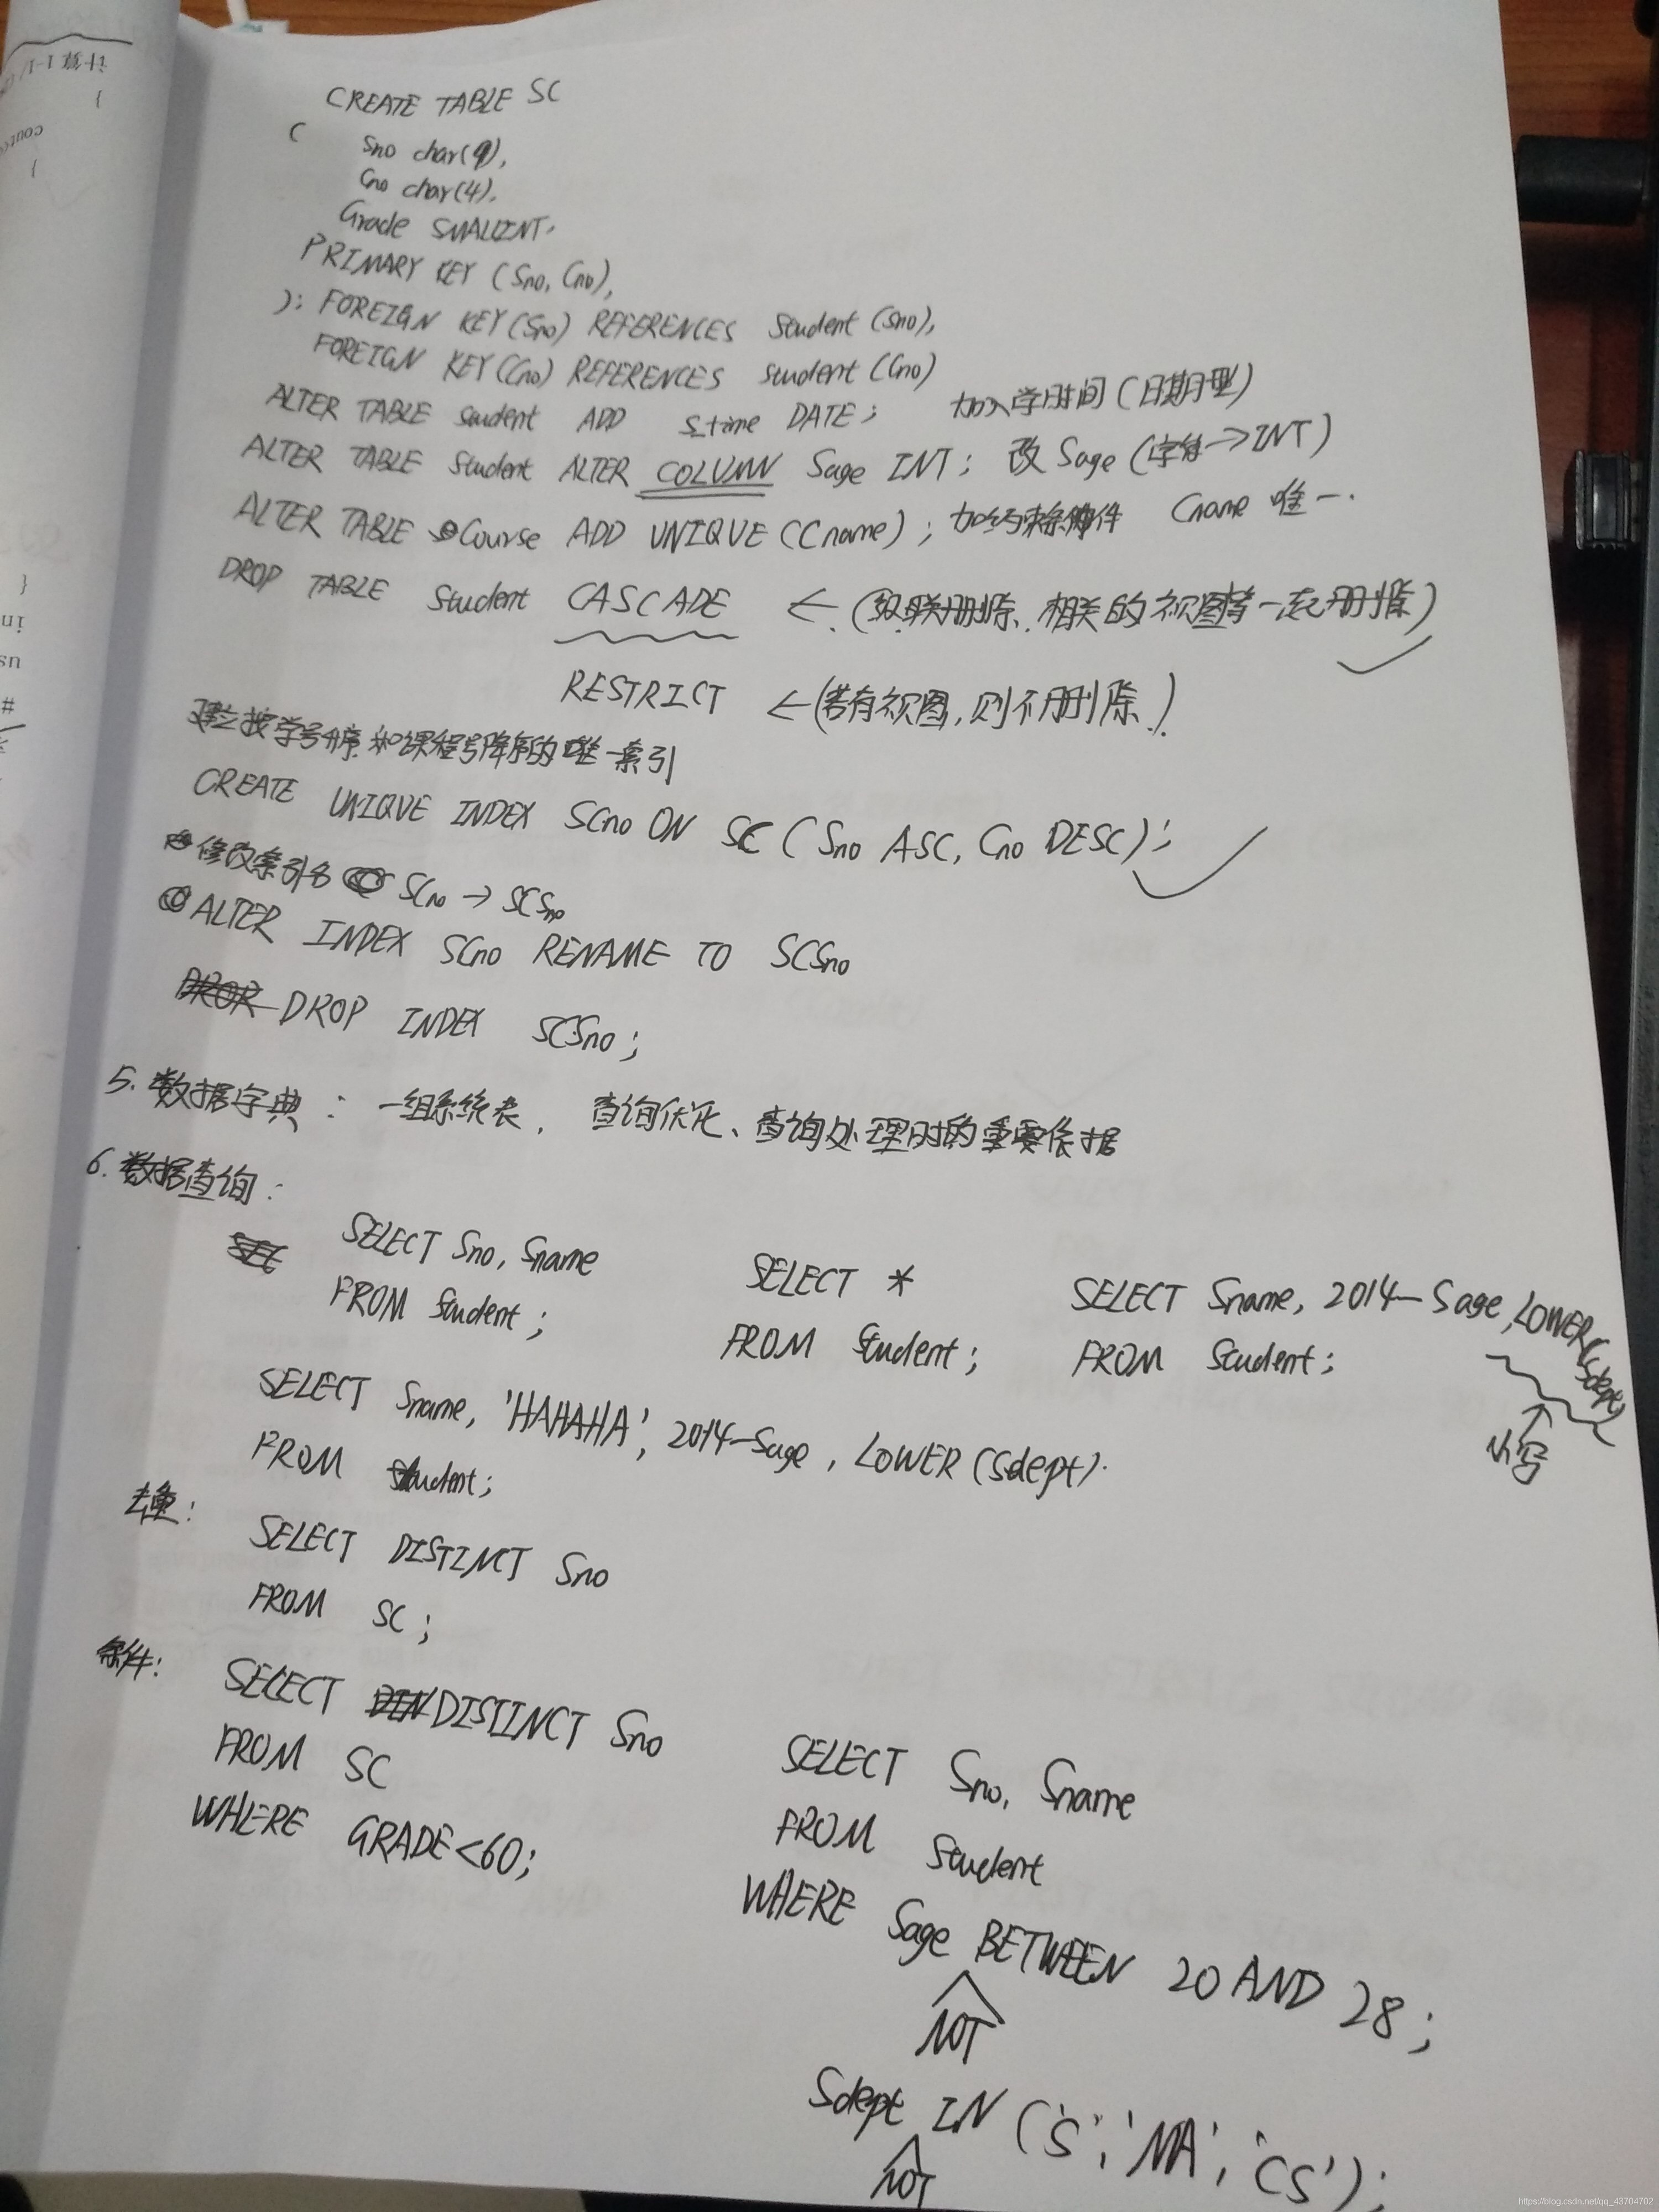 CREATE TABLE SC
(
Sno char(9),
Cno char(4),
Grade SMALLINT,
PRIMARY KEY (Sno, Cno),
); FOREIGN KEY(Sno) REFERENCES Student (Sno),
FOREIGN KEY(Cno) REFERENCES student (Cno)
ALTER TABLE student ADD S_time DATE; 加入学时间(日期型)
ALTER TABLE Student ALTER COLUMN Sage INT; 改Sage(字符→INT)
ALTER TABLE Course ADD UNIQUE (Cname); 加约束条件 Cname 唯一.
DROP TABLE Student CASCADE ←(级联删除.相关的视图等一起删除)
RESTRICT ←(若有视图,则不删除.)
建立按学号升序和课程号降序的唯一索引
CREATE UNIQUE INDEX SCno ON SC (Sno ASC, Cno DESC);
修改索引名 SCno → SCSno
ALTER INDEX SCno RENAME TO SCSno
DROP INDEX SCSno;
5. 数据字典: 一组系统表, 查询优化、查询处理时的重要依据
6. 数据查询:
SELECT Sno, Sname
FROM Student;
SELECT *
FROM Student;
SELECT Sname, 2014-Sage, LOWER(Sdept)
FROM Student;
小写
SELECT Sname, 'HAHAHA', 2014-Sage, LOWER (Sdept)
FROM Student;
去重:
SELECT DISTINCT Sno
FROM SC;
条件:
SELECT DISTINCT Sno
FROM SC
WHERE GRADE<60;
SELECT Sno, Sname
FROM Student
WHERE Sage BETWEEN 20 AND 28;
NOT
Sdept IN ('S','MA','CS');
NOT
计算 1-1/
}
}
}
in
us
#
https://blog.csdn.net/qq_43704702